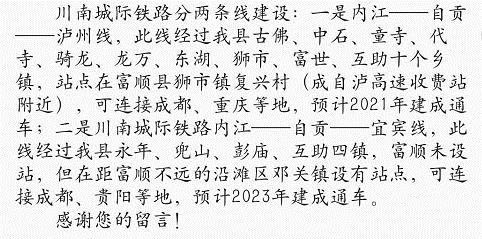 川南城际铁路分两条线建设：一是内江——自贡
——泸州线，此线经过我县古佛、中石、童寺、代
寺、骑龙、龙万、东湖、狮市、富世、互助十个乡
镇，站点在富顺县狮市镇复兴村（成自泸高速收费站
附近），可连接成都、重庆等地，预计2021年建成通
车；二是川南城际铁路内江——自贡——宜宾线，此
线经过我县永年、兜山、彭庙、互助四镇，富顺未设
站，但在距富顺不远的沿滩区邓关镇设有站点，可连
接成都、贵阳等地，预计2023年建成通车。
感谢您的留言！